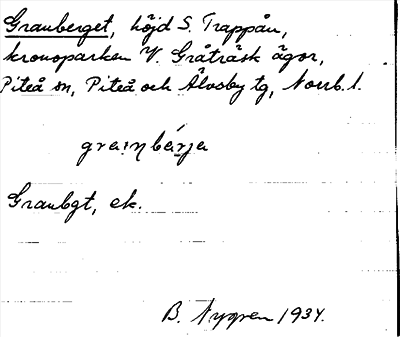 Granberget, höjd S. Trappån,
kronoparken V. Gråträsk ägor,
Piteå sn, Piteå och Älvsby tg, Norrb. l.
gra:ṇbárja
Granbgt, ek.
B. Nygren 1934.